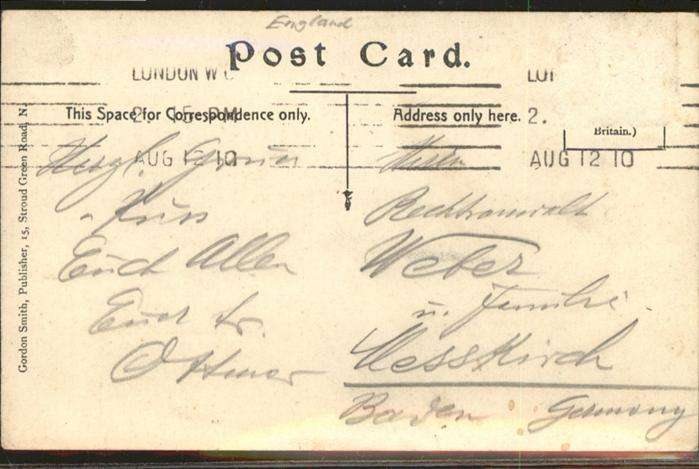 England
Post Card.
LONDON W C
LO
This Space for Correspondence only.
Address only here.
2.
Britain.)
AUG 12 10
AUG 12 10
Herzl.
Herrn
Kuss
Rechtsanwalt
Euch Allen
Weber
Euer
u. Familie.
Ottmar
Messkirch
Baden Germany
Gordon Smith, Publisher, 15, Stroud Green Road, N.